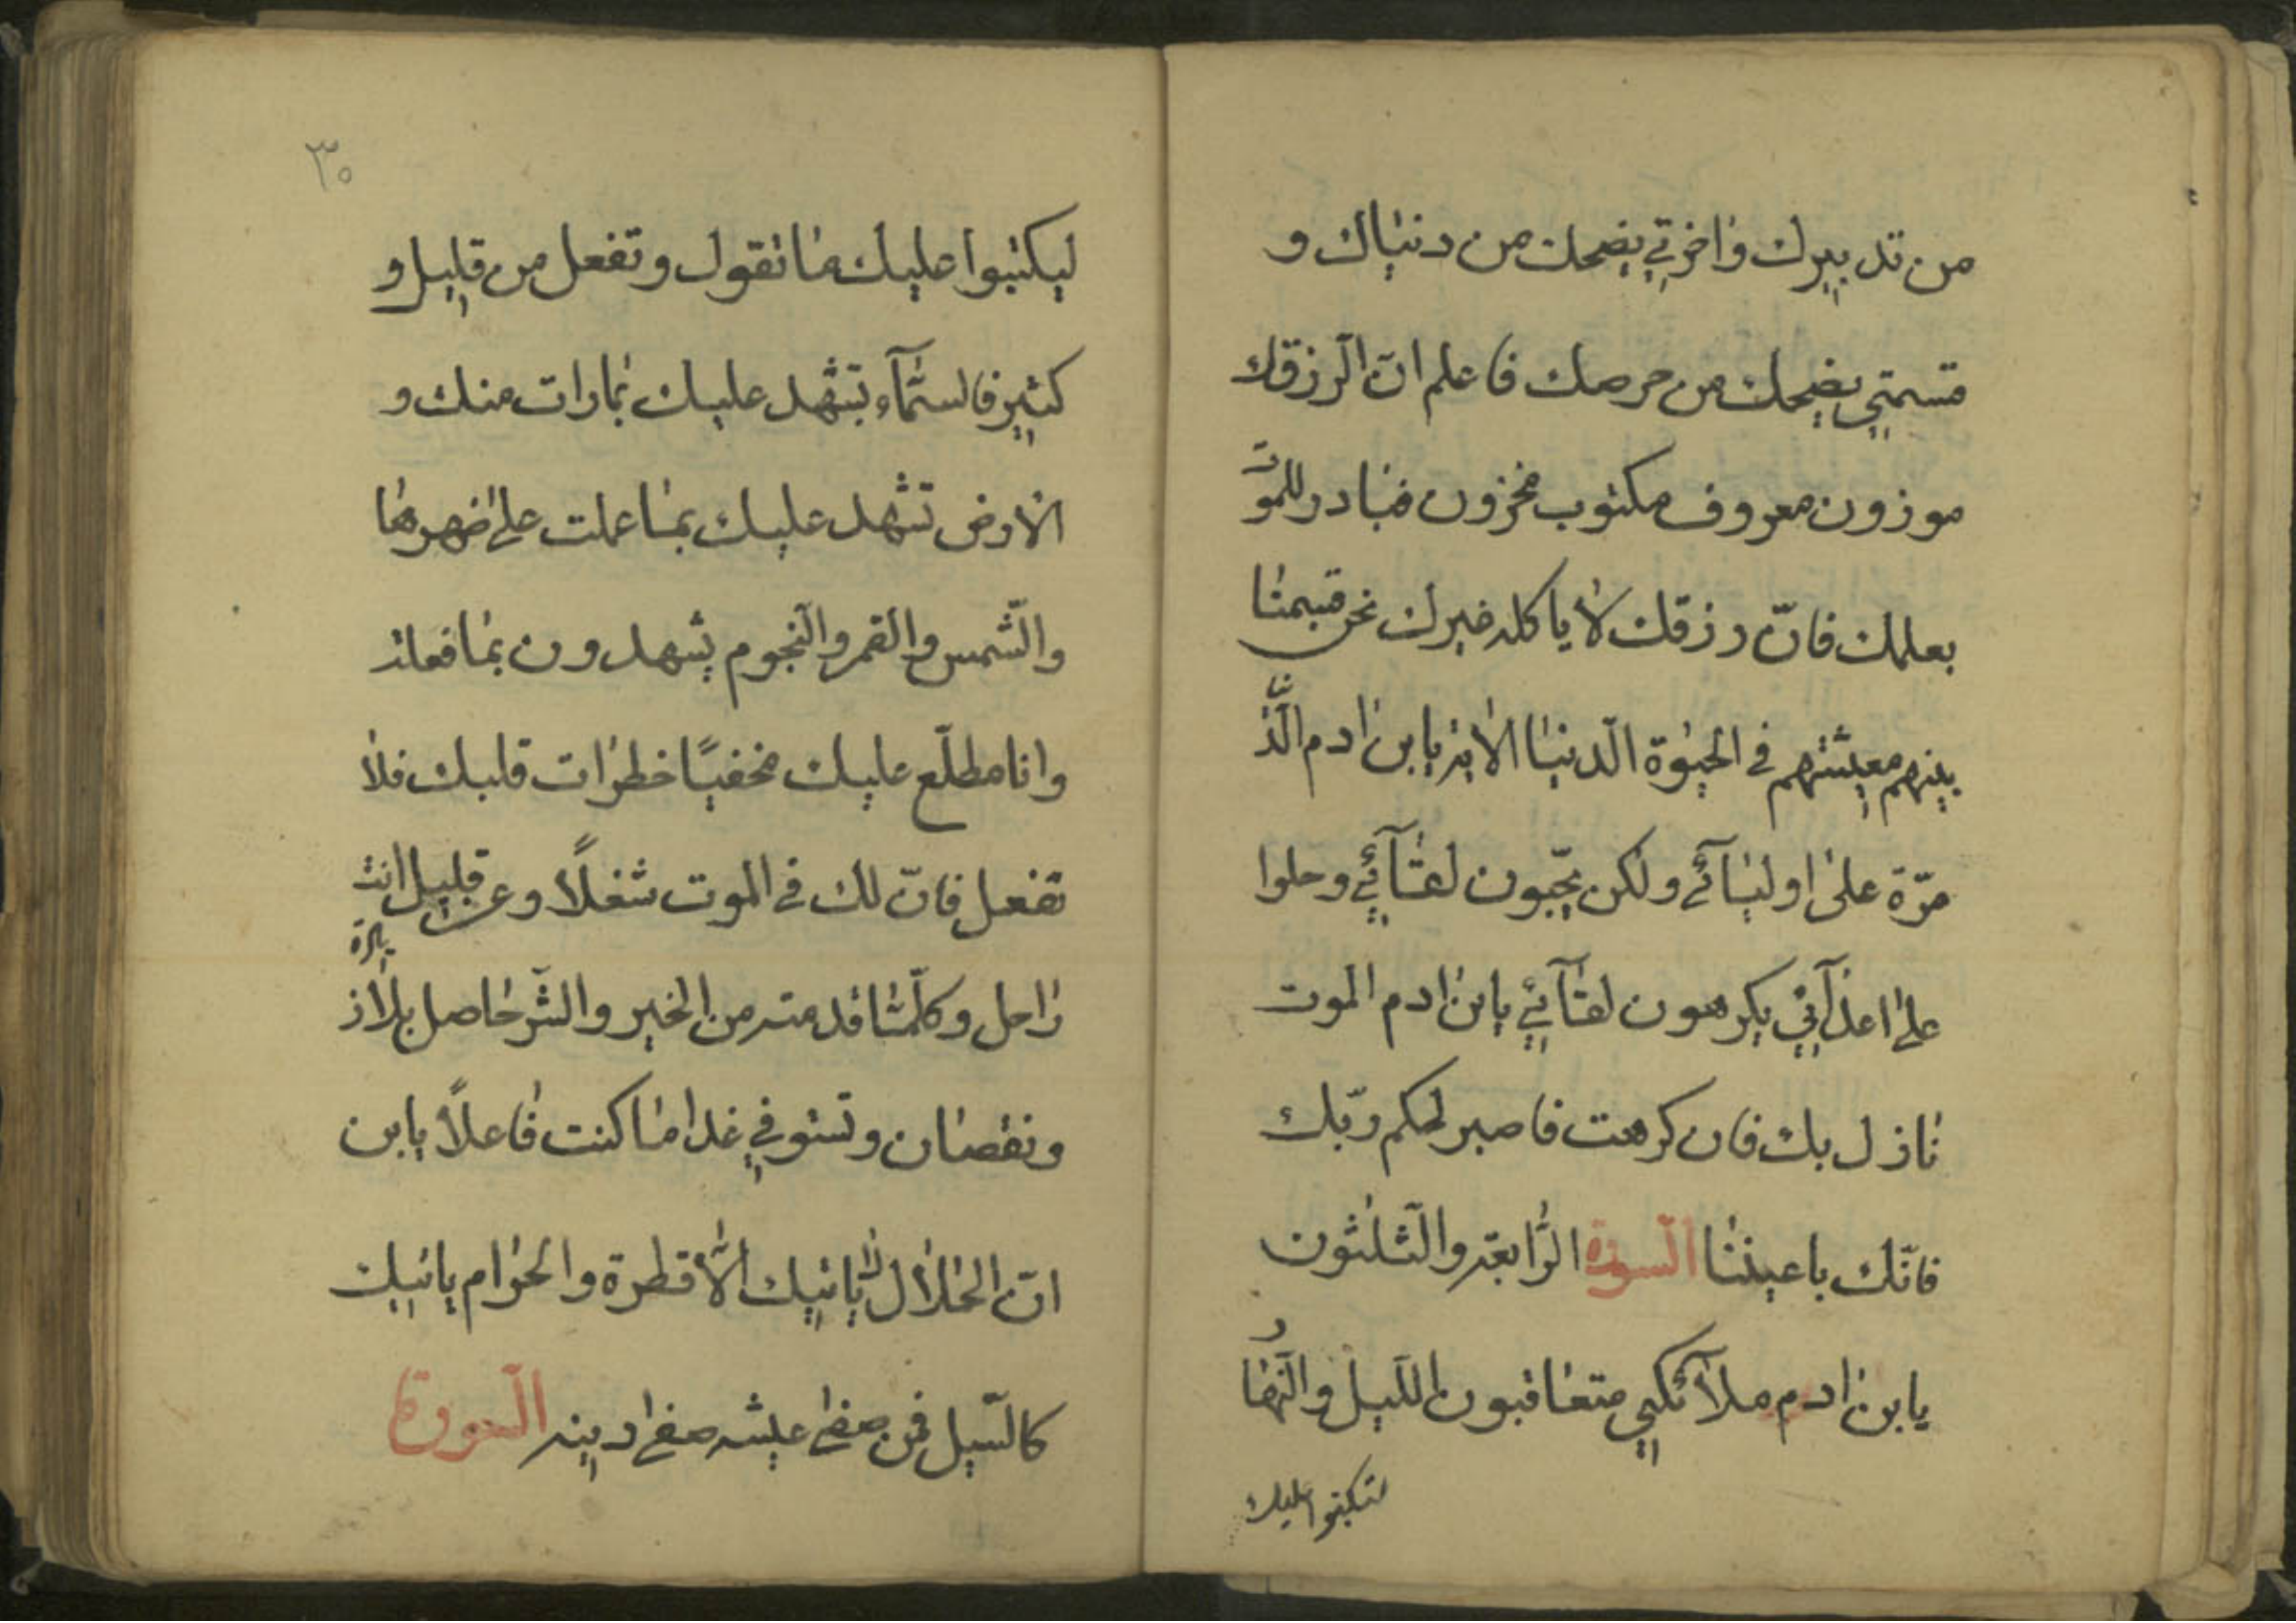 من تدبيرك واخرتي يضحك من دنياك و
قسمتي يضحك من حرصك فاعلم ان الرزقك
موزون معروف مكتوب مخزون فبادر للموت
بعملك فانّ رزقك لا ياكله غيرك نحن قسمنا
بينهم معيشتهم في الحيوة الدّنيا الاية يابن ادم الدّنيا
مرّة على اوليآئي ولكن يحبّون لقآئي وحلوا
على اعدآئي يكرهون لقآئي يابن ادم الموت
نازل بك فان كرهت فاصبر لحكم ربّك
فانّك باعيننا السورة الرّابعة والثّلثون
يابن ادم ملآئكتي متعاقبون الليل والنّهار
لتكتبوا عليك
٣٠
ليكتبوا عليك ما تقول وتفعل من قليل و
كثير فالسّمآء تشهد عليك بما رات منك و
الارض تشهد عليك بما عملت على ضهرها
والشّمس والقمر والنّجوم يشهدون بما فعلت
وانا مطّلع عليك مخفيّا خطرات قلبك فلا
تفعل فانّ لك في الموت شغلًا وعن قليل انت
راحل وكلّما قدمته من الخير والشّر حاصل بلا زيادة
ونقصان وتستوفي غدا ما كنت فاعلًا يابن
انّ الحلال لا ياتيك الّا قطرة والحرام ياتيك
كالسّيل فمن صفى عيشه صفى دينه السورة